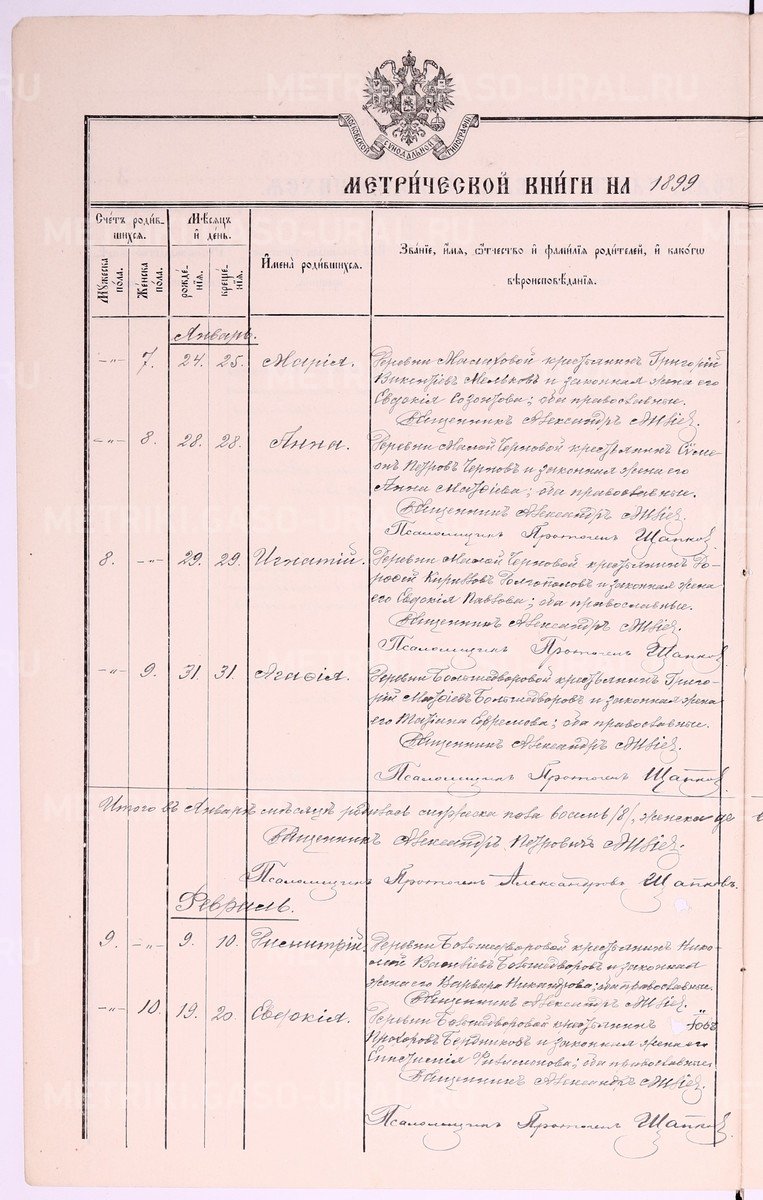 МОСКОВСКОЙ СУНОДАЛЬНОЙ ТИПОГРАФІИ
МЕТРИ́ЧЕСКОЙ КНИ́ГИ НА 1899
Сче́тъ роди́в-
шихся.
Мѣ́сяцъ
и҆ де́нь.
И҆мена̀ роди́вшихся.
Зва́ніе, и҆́мя, ѻ҆́тчество и҆ фами́лія роди́телей, и҆ како́гѡ
вѣроисповѣ́данія.
Му́жеска
по́ла.
Же́нска
по́ла.
рожде́-
нія.
креще́-
нія.
Январь.
-"- 7. 24. 25. Марія. Деревни Малаховой крестьянинъ Григорій
Викентіевъ Мельковъ и законная жена его
Евдокія Созонтова; оба православные.
Священникъ Александръ
-"- 8. 28. 28. Анна. Деревни Малой Черновой крестьянинъ Сѵме-
онъ Петровъ Черновъ и законная жена его
Анна Матѳіева; оба православные.
Священникъ Александръ
Псаломщикъ Протогенъ Щапковъ
8. -"- 29. 29. Игнатій. Деревни Малой Черновой крестьянинъ До-
роѳей Кирилловъ и законная жена
его Евдокія Павлова; оба православные.
Священникъ Александръ
Псаломщикъ Протогенъ Щапковъ
-"- 9. 31. 31. Агаѳія. Деревни Большедворовой крестьянинъ Григо-
рій Матѳіевъ Большедворовъ и законная жена
его Татіана Ефремова; оба православные.
Священникъ Александръ
Псаломщикъ Протогенъ Щапковъ
Итого въ Январѣ мѣсяцѣ родилось мужеска пола восемь /8/, женска де
Священникъ Александръ Петровичъ
Псаломщикъ Протогенъ Александровъ Щапковъ.
Февраль.
9. -"- 9. 10. Димитрій. Деревни Большедворовой крестьянинъ Нико-
лай Васильевъ Большедворовъ и законная
жена его Варвара Никандрова; оба православные.
Священникъ Александръ
-"- 10. 19. 20. Евдокія. Деревни Большедворовой крестьянинъ Іовъ
Прохоровъ Бердниковъ и законная жена его
Филимонова; оба православные
Священникъ Александръ
Псаломщикъ Протогенъ Щапковъ